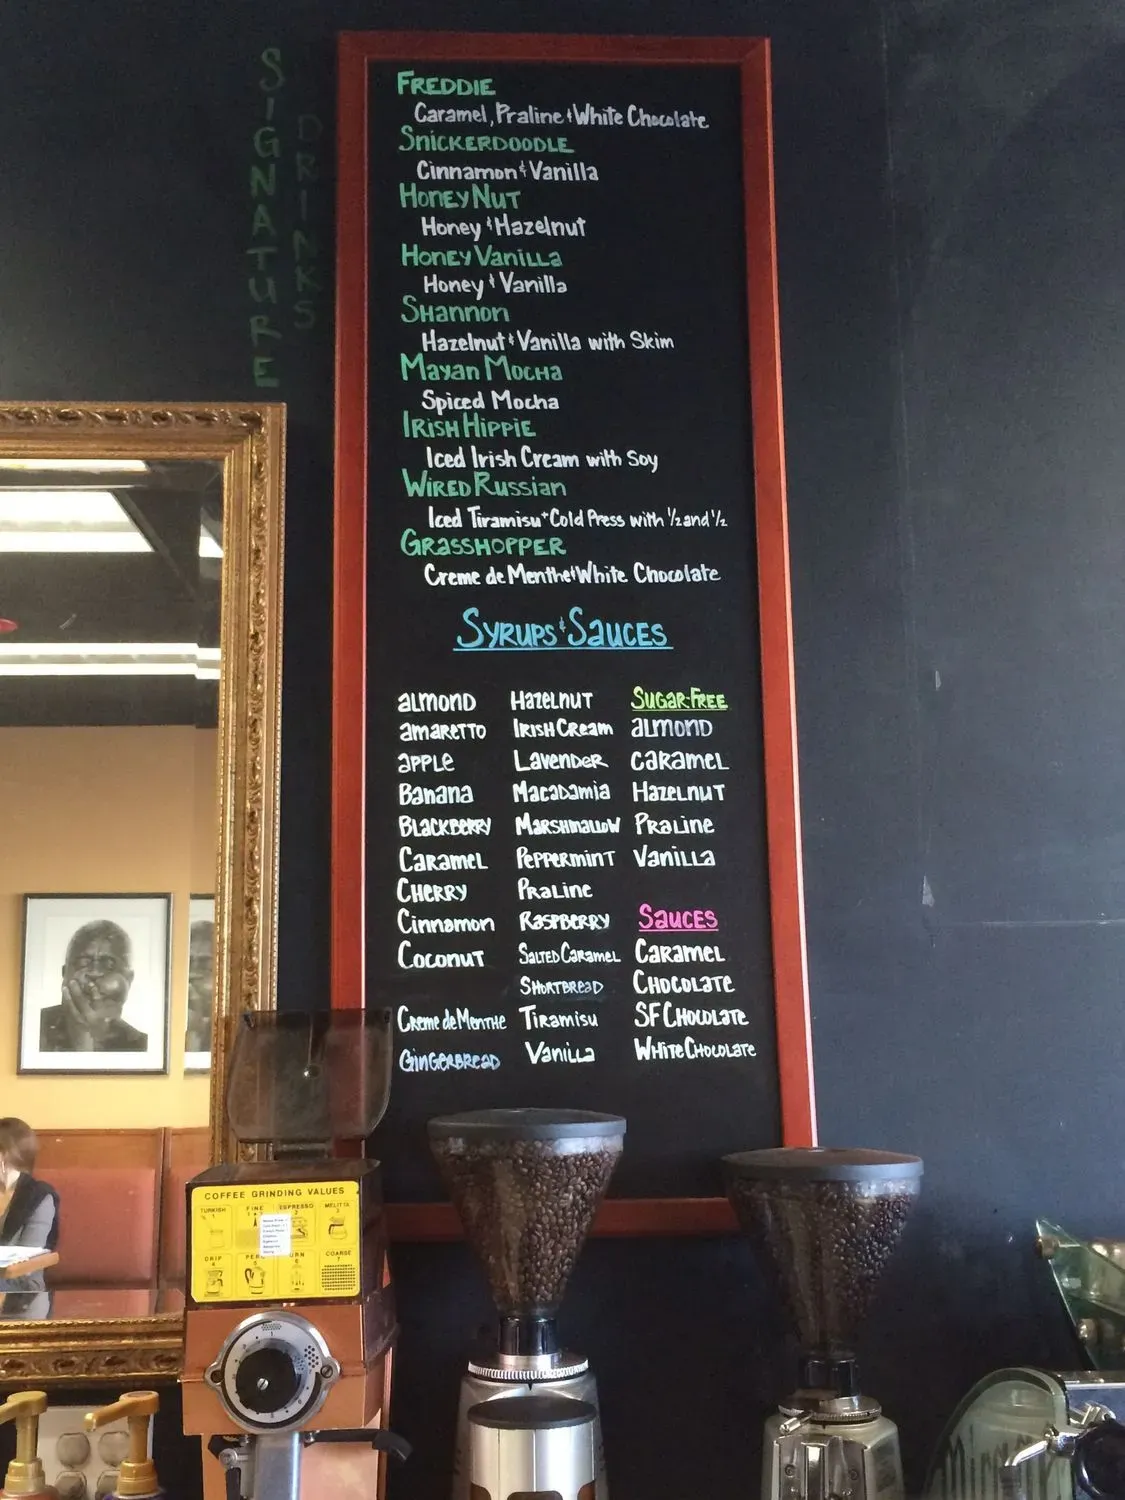 SIGNATURE
DRINKS
FREDDIE
Caramel, Praline & White Chocolate
SNICKERDOODLE
Cinnamon & Vanilla
HONEY NUT
Honey & Hazelnut
HONEY VANILLA
Honey & Vanilla
SHANNON
Hazelnut & Vanilla with Skim
MAYAN MOCHA
Spiced Mocha
IRISH HIPPIE
Iced Irish Cream with Soy
WIRED RUSSIAN
Iced Tiramisu + Cold Press with ½ and ½
GRASSHOPPER
Creme de Menthe & White Chocolate
SYRUPS & SAUCES
ALMOND
AMARETTO
APPLE
BANANA
BLACKBERRY
CARAMEL
CHERRY
CINNAMON
COCONUT
CREME de MENTHE
GINGERBREAD
HAZELNUT
IRISH CREAM
LAVENDER
MACADAMIA
MARSHMALLOW
PEPPERMINT
PRALINE
RASPBERRY
SALTED CARAMEL
SHORTBREAD
TIRAMISU
VANILLA
SUGAR-FREE
ALMOND
CARAMEL
HAZELNUT
PRALINE
VANILLA
SAUCES
CARAMEL
CHOCOLATE
SF CHOCOLATE
WHITE CHOCOLATE
COFFEE GRINDING VALUES
TURKISH FINE ESPRESSO MELITTA
DRIP COARSE
4 5 6 7